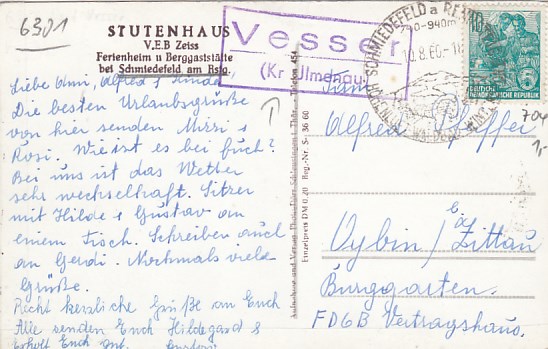 6301
STUTENHAUS
V.E.B Zeiss
Ferienheim u Berggaststätte
bei Schmiedefeld am Rstg.
Vesser
(Kr. Ilmenau)
SCHMIEDEFELD a RENNSTEIG
10.8.60
DEUTSCHE
DEMOKRATISCHE REPUBLIK
5
Liebe Omi, Alfred & Kinder
Die besten Urlaubsgrüße
von hier senden
Rosi. Wie ist es bei Euch?
Bei uns ist das Wetter
sehr wechselhaft. Sitzen
mit Hilde & Gustav an
einem Tisch. Schreiben auch
an Gerdi. Nochmals viele
Grüße.
Recht herzliche Grüße an Euch
Alle senden Euch Hildegard &
Erholt Euch gut.
Einzelpreis DM 0,20 Reg.-Nr. S- 36 60
Alfred
Oybin / b. Zittau
Burggarten.
FDGB Vertragshaus.
1,-